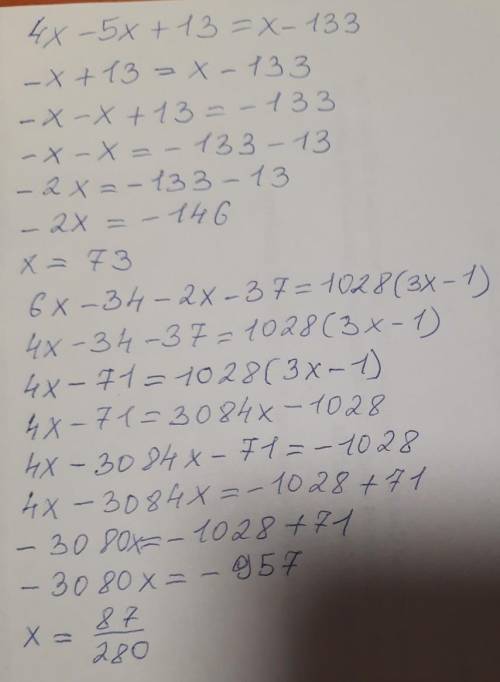 4x - 5x + 13 = x - 133
-x + 13 = x - 133
-x - x + 13 = -133
-x - x = -133 - 13
-2x = -133 - 13
-2x = -146
x = 73
6x - 34 - 2x - 37 = 1028(3x - 1)
4x - 34 - 37 = 1028(3x - 1)
4x - 71 = 1028(3x - 1)
4x - 71 = 3084x - 1028
4x - 3084x - 71 = -1028
4x - 3084x = -1028 + 71
-3080x = -1028 + 71
-3080x = -957
x = 87/280